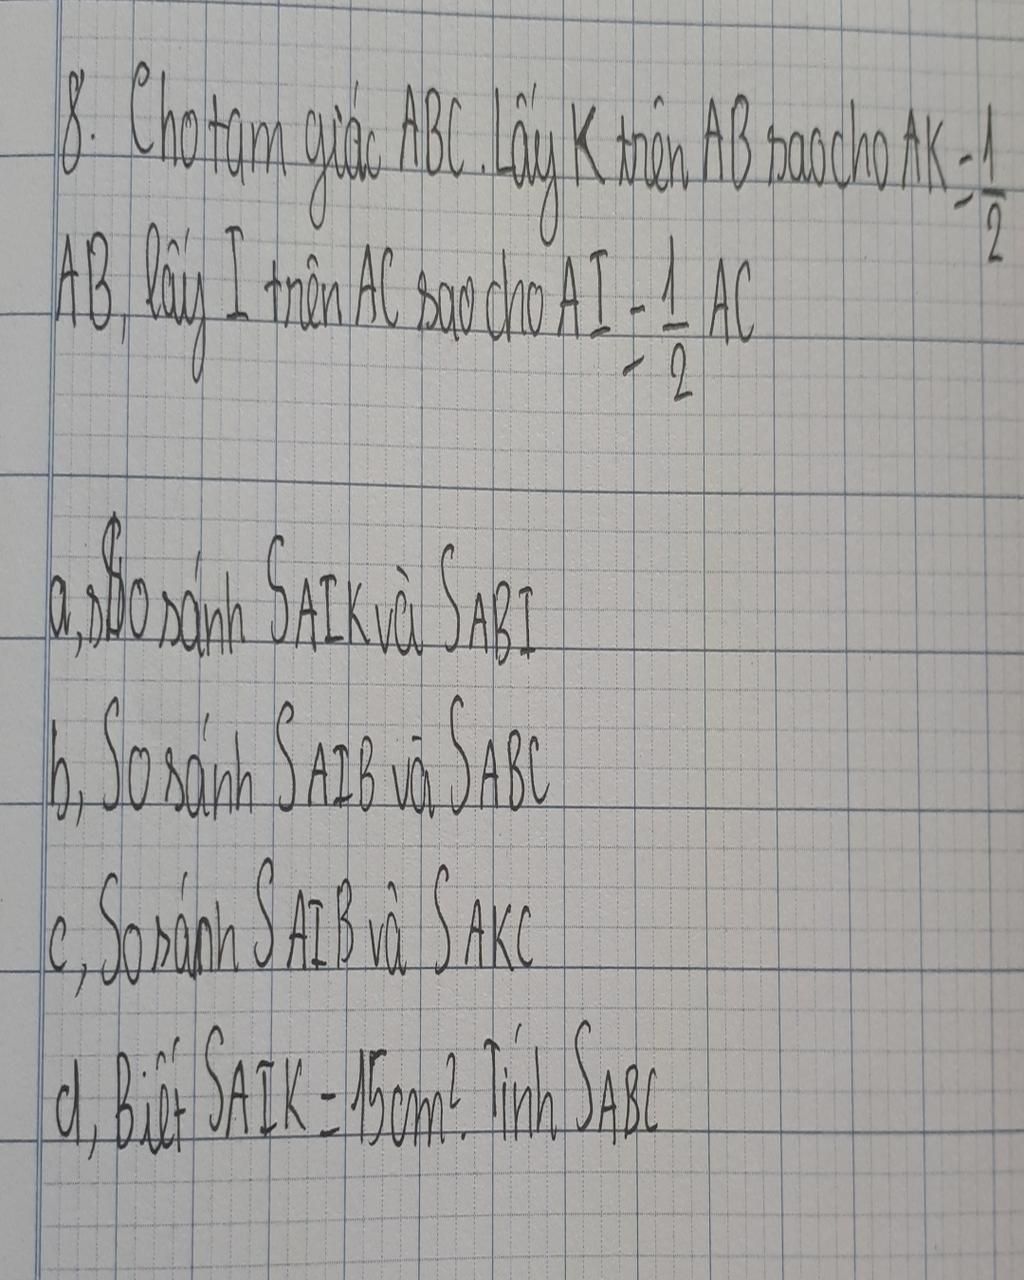 8. Cho tam giác ABC. Lấy K trên AB sao cho AK = 1/2
AB, lấy I trên AC sao cho AI = 1/2 AC
a, So sánh SAIK và SABI
b, So sánh SAIB và SABC
c, So sánh SAIB và SAKC
d, Biết SAIK = 15cm². Tính SABC